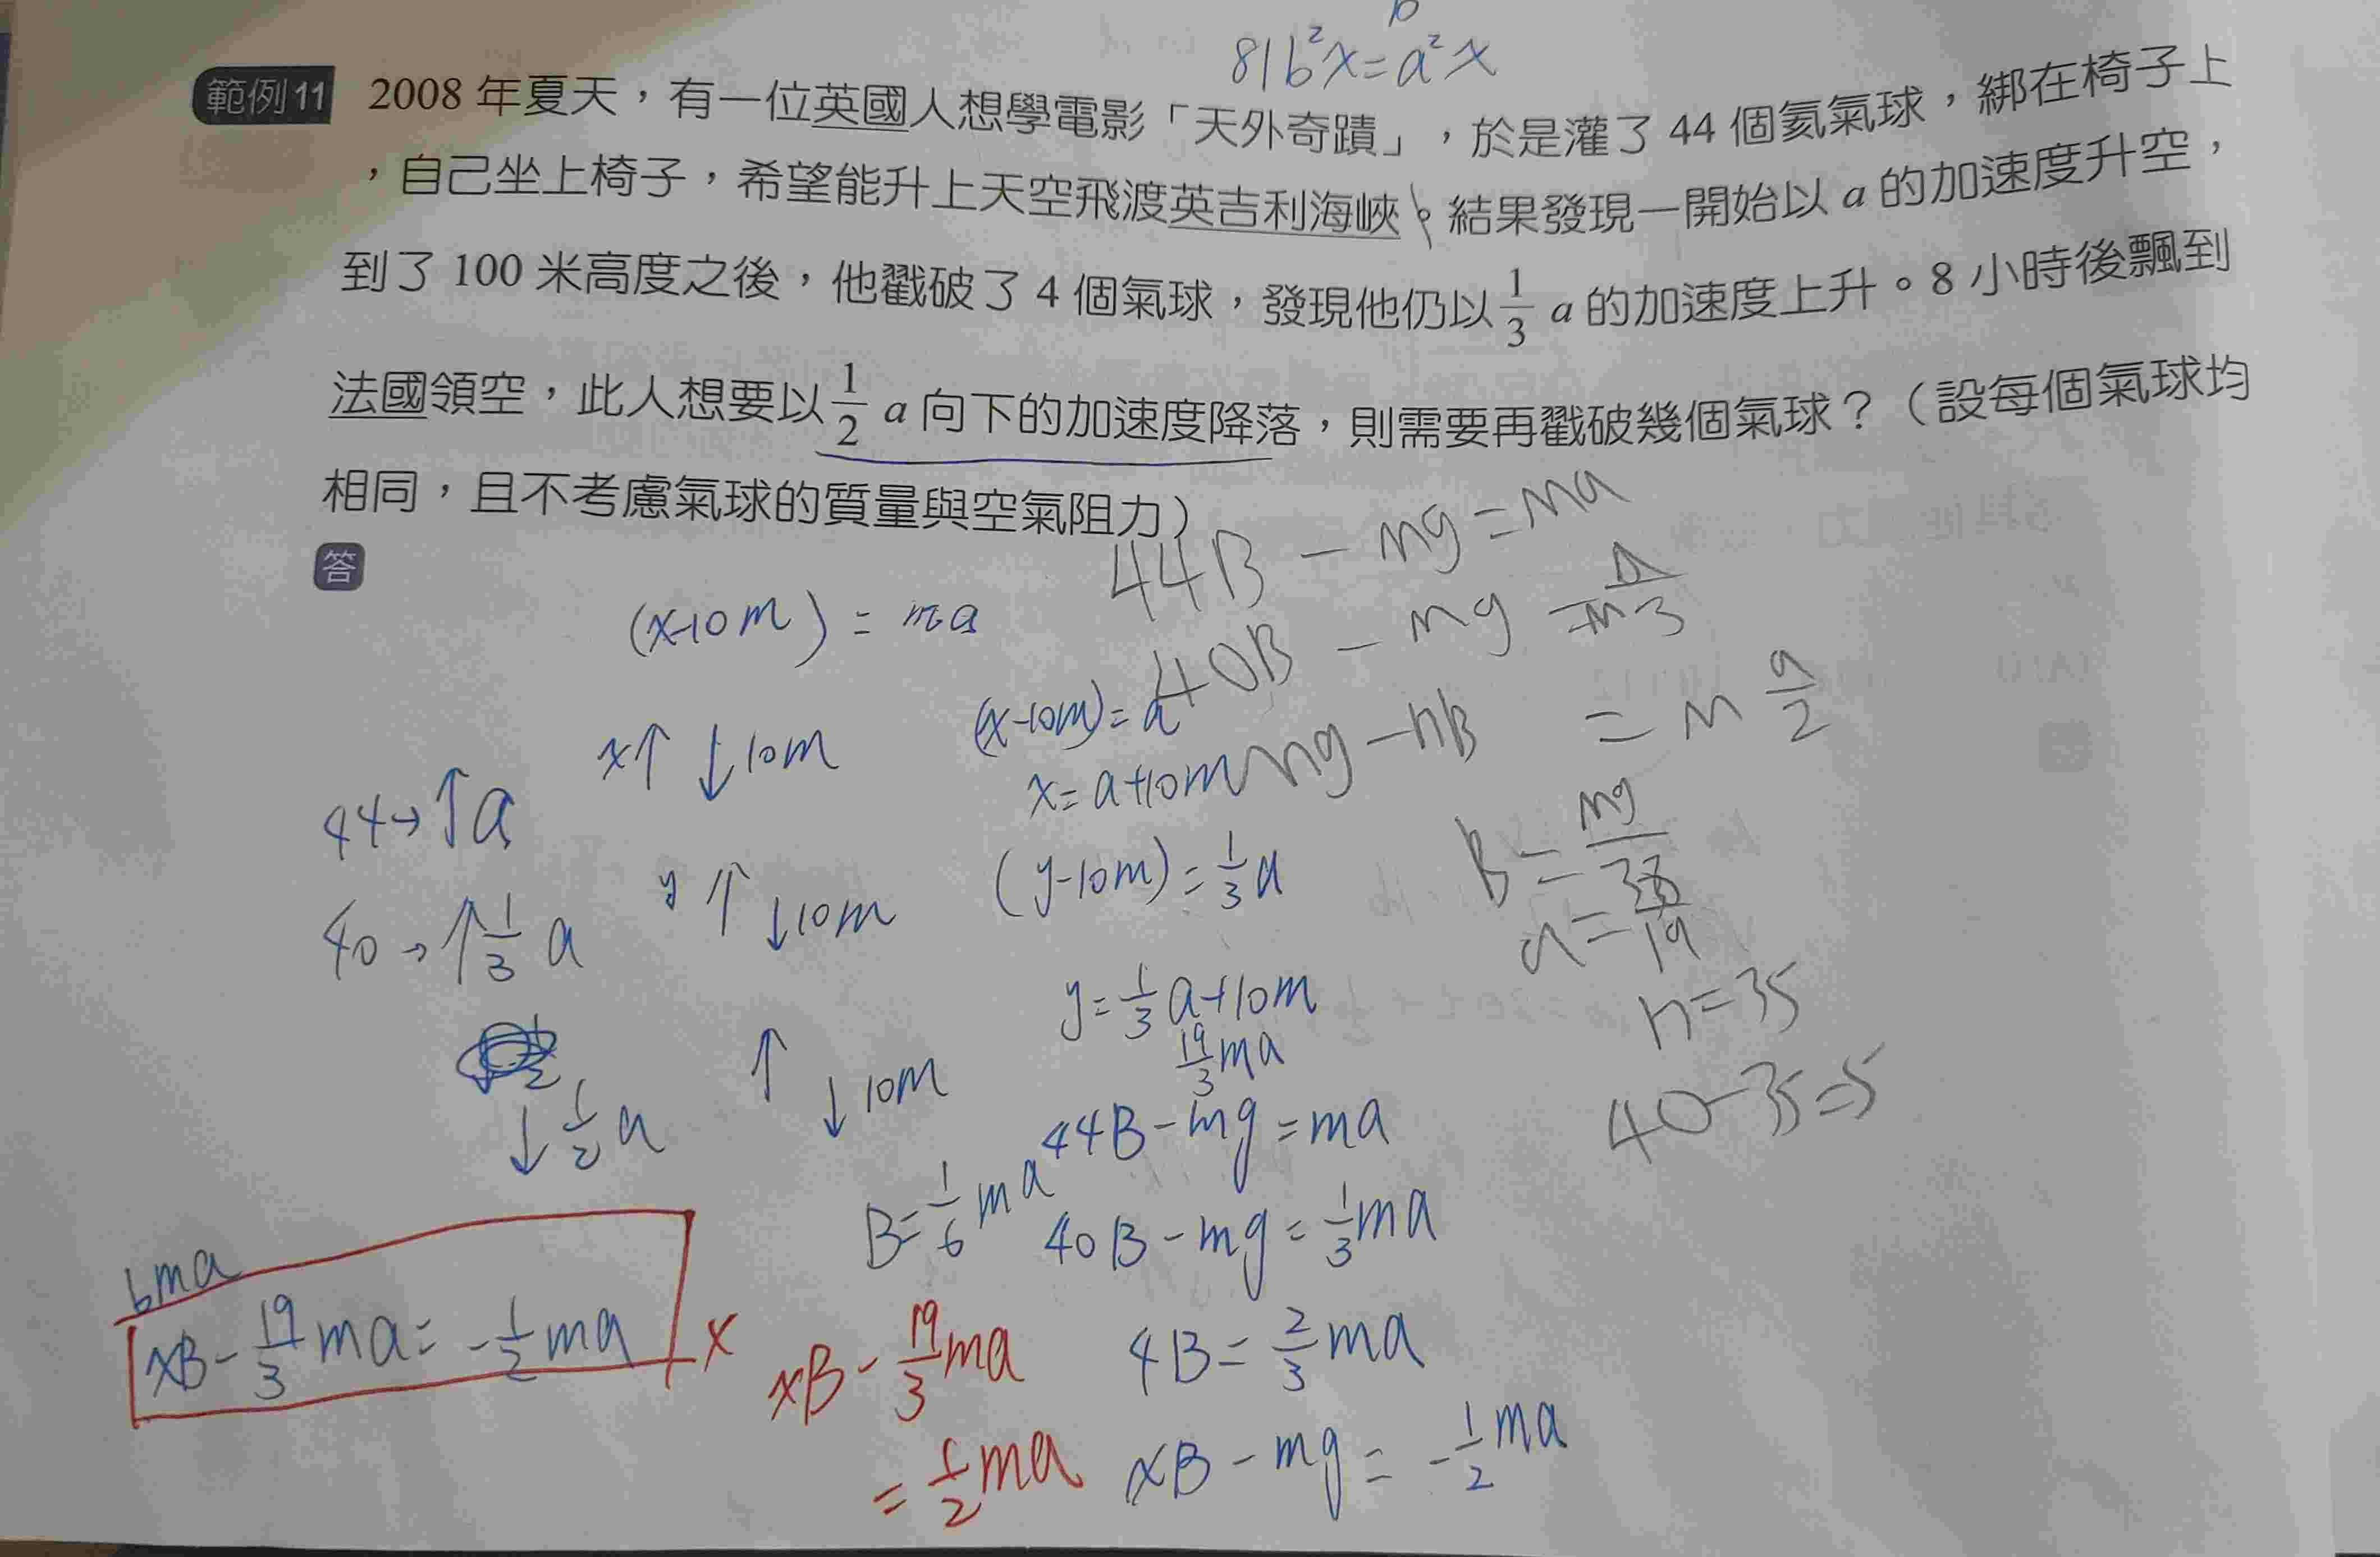 b
81b²x=a²x
範例11 2008 年夏天，有一位英國人想學電影「天外奇蹟」，於是灌了 44 個氦氣球，綁在椅子上
，自己坐上椅子，希望能升上天空飛渡英吉利海峽。結果發現一開始以 a 的加速度升空，
到了 100 米高度之後，他戳破了 4 個氣球，發現他仍以 1/3 a 的加速度上升。8 小時後飄到
法國領空，此人想要以 1/2 a 向下的加速度降落，則需要再戳破幾個氣球？（設每個氣球均
相同，且不考慮氣球的質量與空氣阻力）
答
44B - mg = ma
(x-10m) = ma
40B - mg = m a/3
(x-10m) = a
mg - nB = m a/2
x↑ ↓10m
x = a+10m
44→↑a
B = mg/38
y↑ ↓10m
(y-10m) = 1/3 a
40→↑1/3 a
n=35
y = 1/3 a+10m
19/3 ma
↑ ↓10m
40-35=5
↓1/2 a
44B - mg = ma
B = 1/6 ma
40B - mg = 1/3 ma
6ma
xB - 19/3 ma = -1/2 ma x
xB - 19/3 ma
4B = 2/3 ma
= 1/2 ma
xB - mg = -1/2 ma